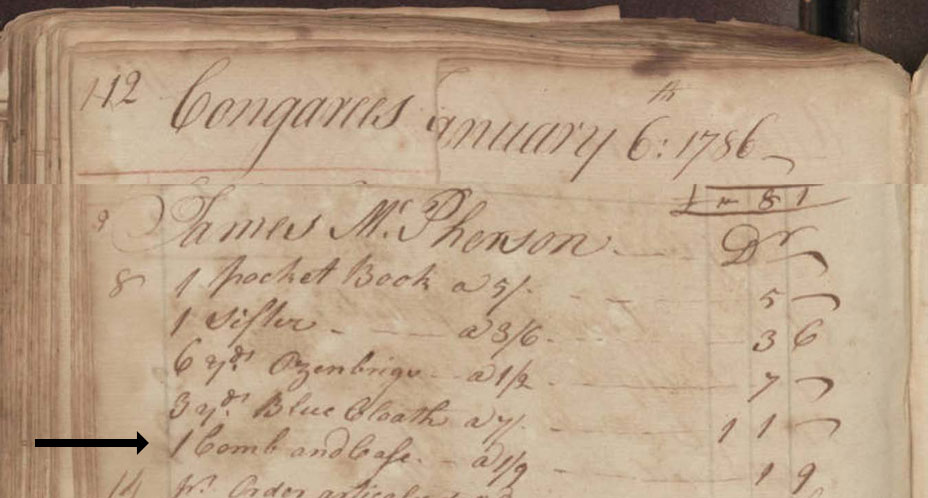 112 Congarees January 6:th 1786
£ " 8 1
9 James Mc.Pherson Dr
8 1 pocket Book a 5/ 5
1 Sifter a 3/6 3 6
6 yds Ozenbrigs a 1/2 7
3 yds. Blue Cloath a 7/ 1 1
1 Comb and Case a 1/9 1 9
14 Order